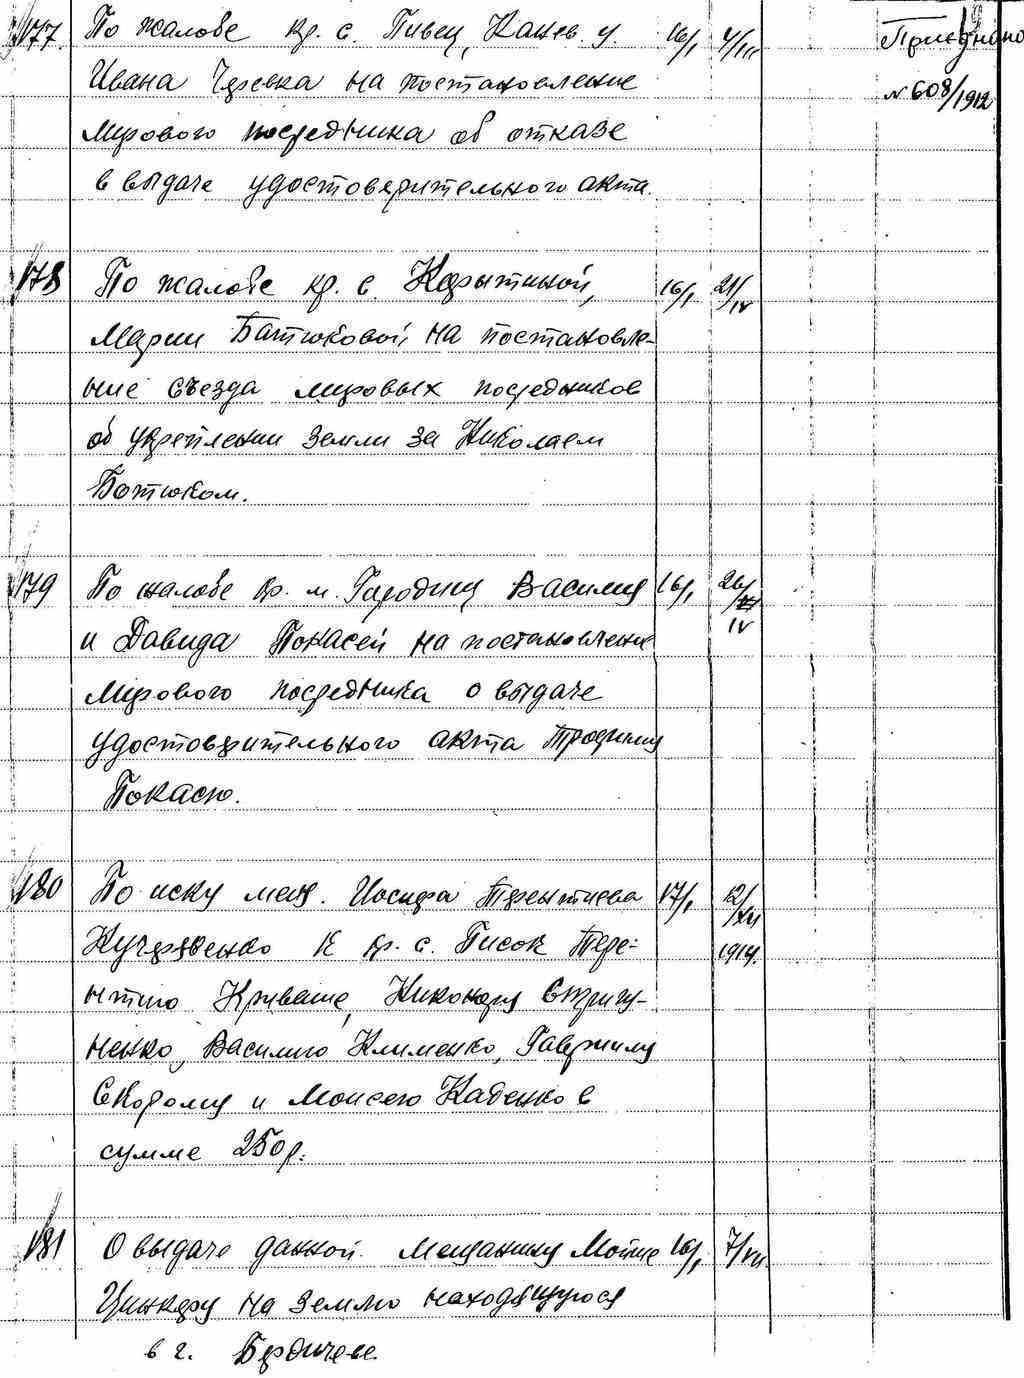 177. По жалобе кр. с. Пивец, Канев. у. 16/I 4/III Приобщено
Ивана Черевка на постановление № 608/1912
мирового посредника об отказе
в выдаче удостоверительного акта.
178 По жалобе кр. с. Карытиной, 16/I 21/IV
Марии Батюковой на постановле-
ние съезда мировых посредников
об укреплении земли за Николаем
Ботюком.
179 По жалобе кр. м. Городищ Василия 16/I 26/
и Давида Покасей на постановление IV
мирового посредника о выдаче
удостоверительного акта Трофиму
Покасю.
180 По иску мещ. Иосифа Терентиева 17/I 12/XII
Кучеренко к кр. с. Писок Тере- 1914.
нтию Криваше, Никонору Стригу-
ненко, Василию Клименко, Гавриилу
Скорому и Моисею Каденко в
сумме 250 р.
181 О выдаче данной мещанину Мойше 16/I 7/VII
Цинкеру на землю находящуюся
в г. Бердичеве